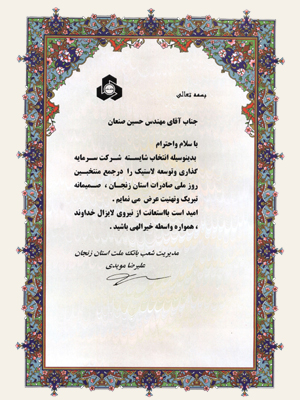 بسمه تعالی
جناب آقای مهندس حسین صنعان
با سلام واحترام
بدینوسیله انتخاب شایسته شرکت سرمایه
گذاری وتوسعه لاستیک را درجمع منتخبین
روز ملی صادرات استان زنجان ، صمیمانه
تبریک وتهنیت عرض می نمایم .
امید است بااستعانت از نیروی لایزال خداوند
، همواره واسطه خیرالهی باشید .
مدیریت شعب بانک ملت استان زنجان
علیرضا مویدی